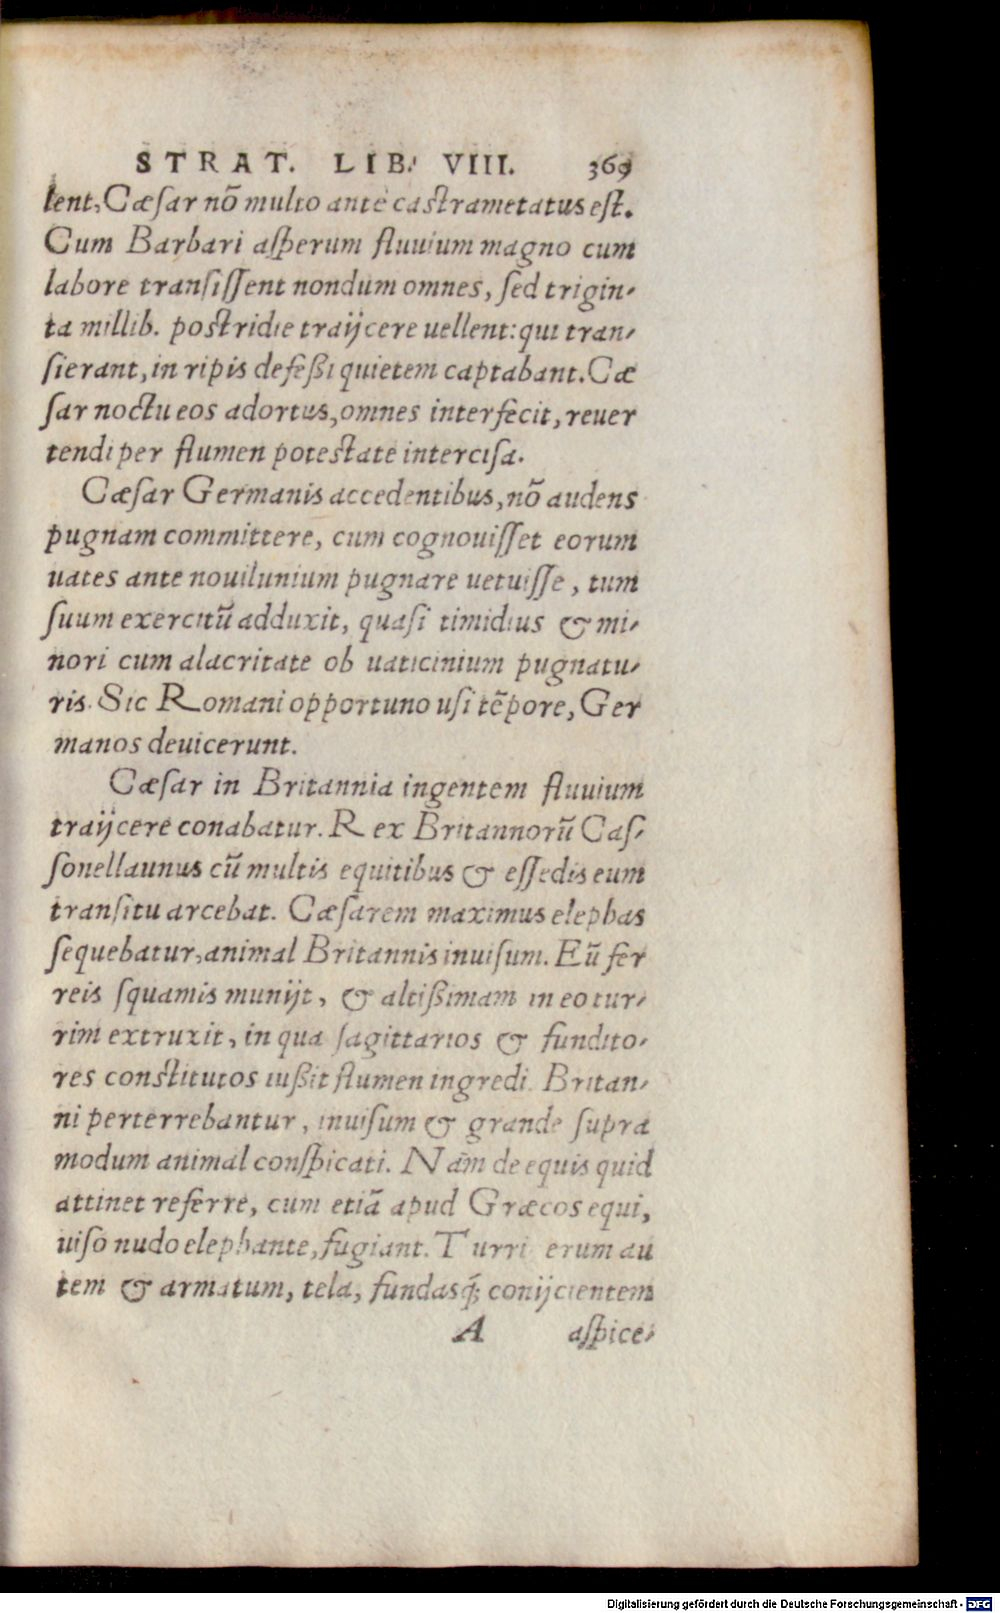 STRAT. LIB. VIII. 369
lent, Cæſar nõ multo ante caſtrametatus eſt.
Cum Barbari aſperum fluuium magno cum
labore tranſiſſent nondum omnes, ſed trigin-
ta millib. poſtridie traijcere uellent: qui tran-
ſierant, in ripis defeßi quietem captabant. Cæ
ſar noctu eos adortus, omnes interfecit, reuer
tendi per flumen poteſtate interciſa.
Cæſar Germanis accedentibus, nõ audens
pugnam committere, cum cognouiſſet eorum
uates ante nouilunium pugnare uetuiſſe, tum
ſuum exercitũ adduxit, quaſi timidius & mi-
nori cum alacritate ob uaticinium pugnatu-
ris. Sic Romani opportuno uſi tẽpore, Ger
manos deuicerunt.
Cæſar in Britannia ingentem fluuium
traijcere conabatur. Rex Britannorũ Caſ-
ſonellaunus cũ multis equitibus & eſſedis eum
tranſitu arcebat. Cæſarem maximus elephas
ſequebatur, animal Britannis inuiſum. Eũ fer
reis ſquamis munijt, & altißimam in eo tur-
rim extruxit, in qua ſagittarios & fundito-
res conſtitutos iußit flumen ingredi. Britan-
ni perterrebantur, inuiſum & grande ſupra
modum animal conſpicati. Nam de equis quid
attinet referre, cum etiã apud Græcos equi,
uiſo nudo elephante, fugiant. Turri erum au
tem & armatum, tela, fundasq́; conijcientem
A aſpice-
Digitalisierung gefördert durch die Deutsche Forschungsgemeinschaft - DFG